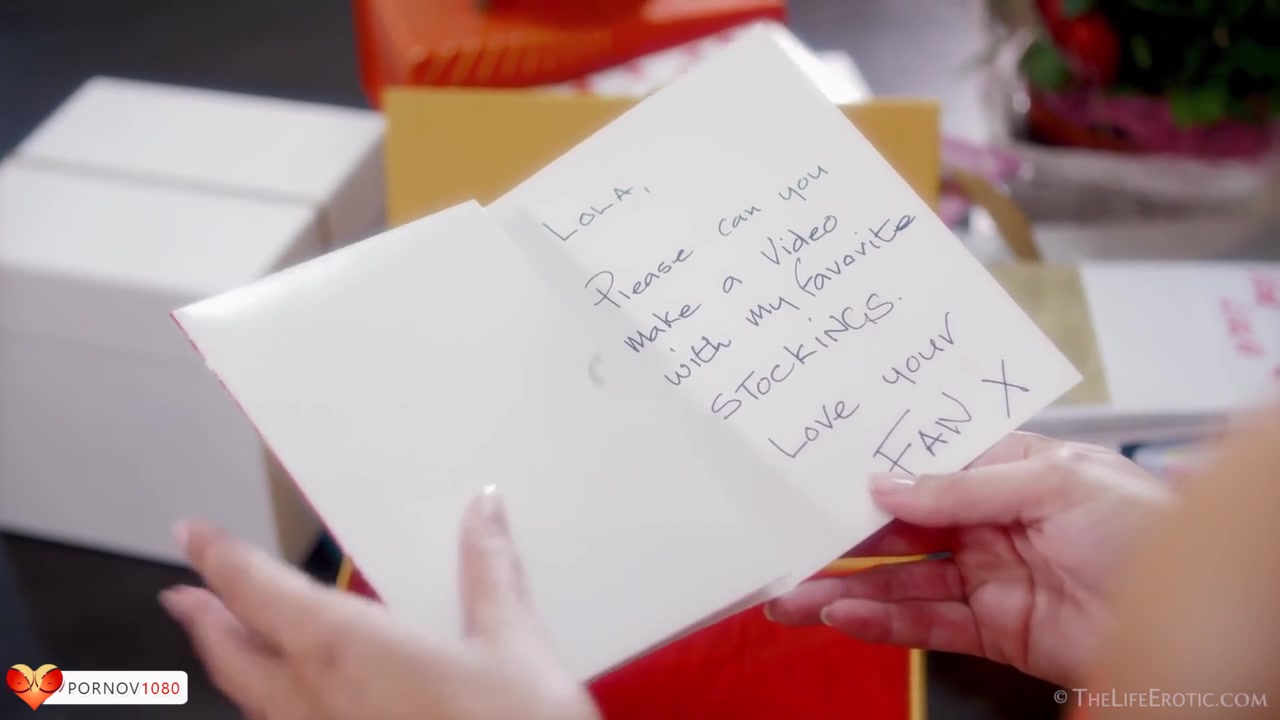 LOLA,
Please can you
make a video
with my favorite
STOCKINGS.
Love your
FAN X
PORNOV1080
© THELIFEEROTIC.COM